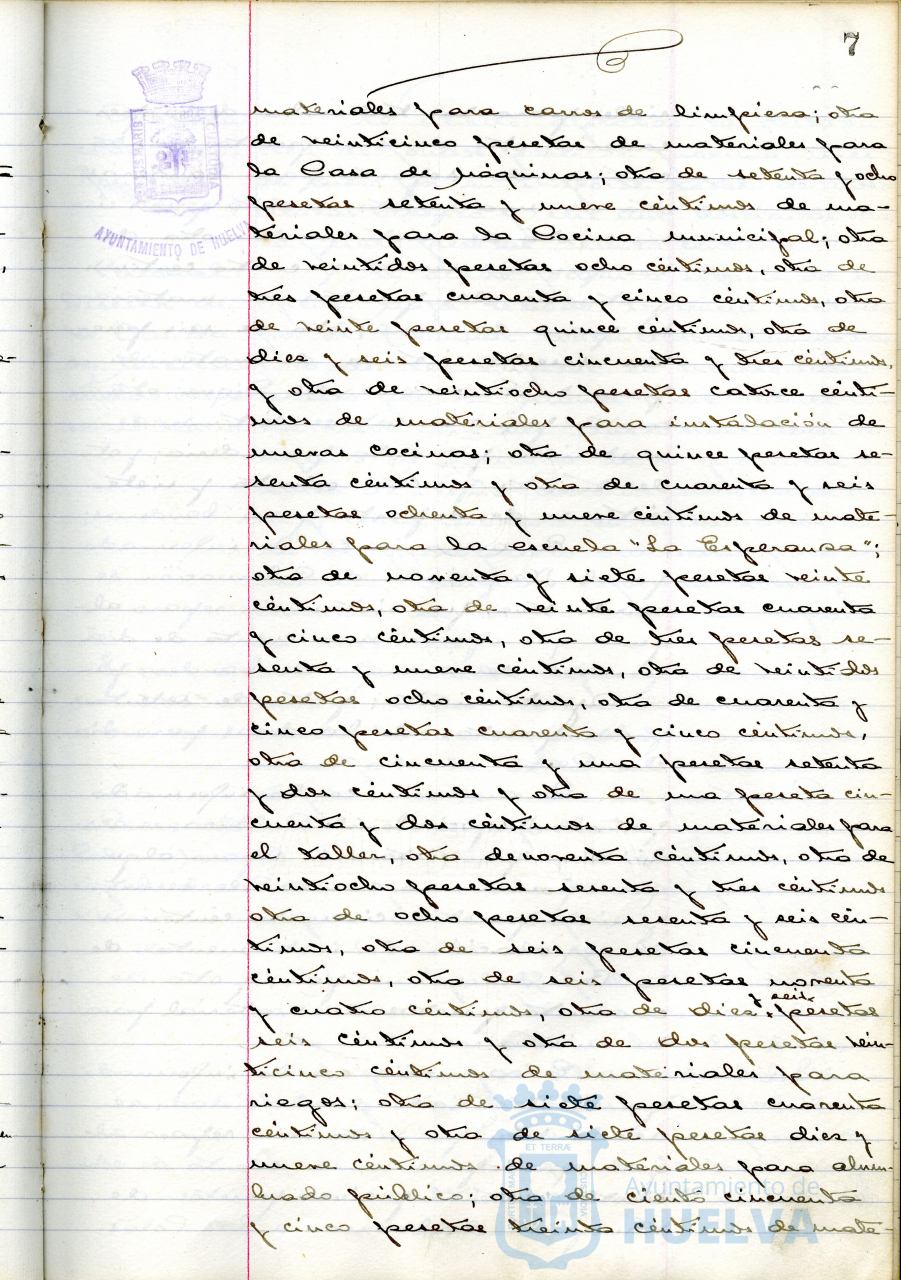 7
materiales para carros de limpiesa; otra
de veinticinco pesetas de materiales para
la Casa de Máquinas; otra de setenta y ocho
pesetas setenta y nueve céntimos de ma-
teriales para la Cocina municipal; otra
de veintidos pesetas ocho céntimos, otra de
tres pesetas cuarenta y cinco céntimos, otra
de veinte pesetas quince céntimos, otra de
dies y seis pesetas cincuenta y tres céntimos,
y otra de veintiocho pesetas catorce cénti-
mos de materiales para instalación de
nuevas cocinas; otra de quince pesetas se-
senta céntimos y otra de cuarenta y seis
pesetas ochenta y nueve céntimos de mate-
riales para la escuela "La Esperansa";
otra de noventa y siete pesetas veinte
céntimos, otra de veinte pesetas cuarenta
y cinco céntimos, otra de tres pesetas se-
senta y nueve céntimos, otra de veintidos
pesetas ocho céntimos, otra de cuarenta y
cinco pesetas cuarenta y cinco céntimos,
otra de cincuenta y una pesetas setenta
y dos céntimos y otra de una peseta cin-
cuenta y dos céntimos de materiales para
el taller, otra de noventa céntimos, otra de
veintiocho pesetas sesenta y tres céntimos
otra de ocho pesetas sesenta y seis cén-
timos, otra de seis pesetas cincuenta
céntimos, otra de seis pesetas noventa
y cuatro céntimos, otra de dies y seis pesetas
seis céntimos y otra de dos pesetas vein-
ticinco céntimos de materiales para
riegos; otra de siete pesetas cuarenta
céntimos y otra de siete pesetas dies y
nueve céntimos de materiales para alum-
brado público; otra de ciento cincuenta
y cinco pesetas treinta céntimos de mate-
AYUNTAMIENTO DE HUELVA
ET TERRÆ
Ayuntamiento de
HUELVA